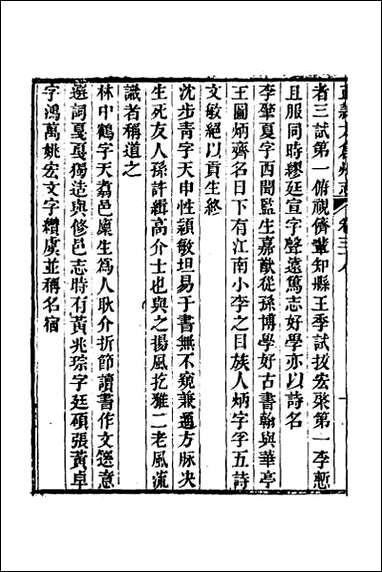 直隸太倉州志 卷三十八
者三試第一俯視儕輩知縣王季試拔宏棨第一李慙
且服同時繆廷宣字聲遠篤志好學亦以詩名
李肇夏字西聞監生嘉猷從孫博學好古書翰與華亭
王圖炳齊名日下有江南小李之目族人炳字孚五詩
文敏絕以貢生終
沈步青字天申性穎敏坦易于書無不窺兼通方脈決
生死友人孫許緝高介士也與之揚風扢雅二老風流
識者稱道之
林中鶴字天翥邑廩生為人耿介折節讀書作文選意
選詞戛戛獨造與修邑志時有黃兆琮字廷碩張黃卓
字鴻萬姚宏文字纘虞並稱名宿